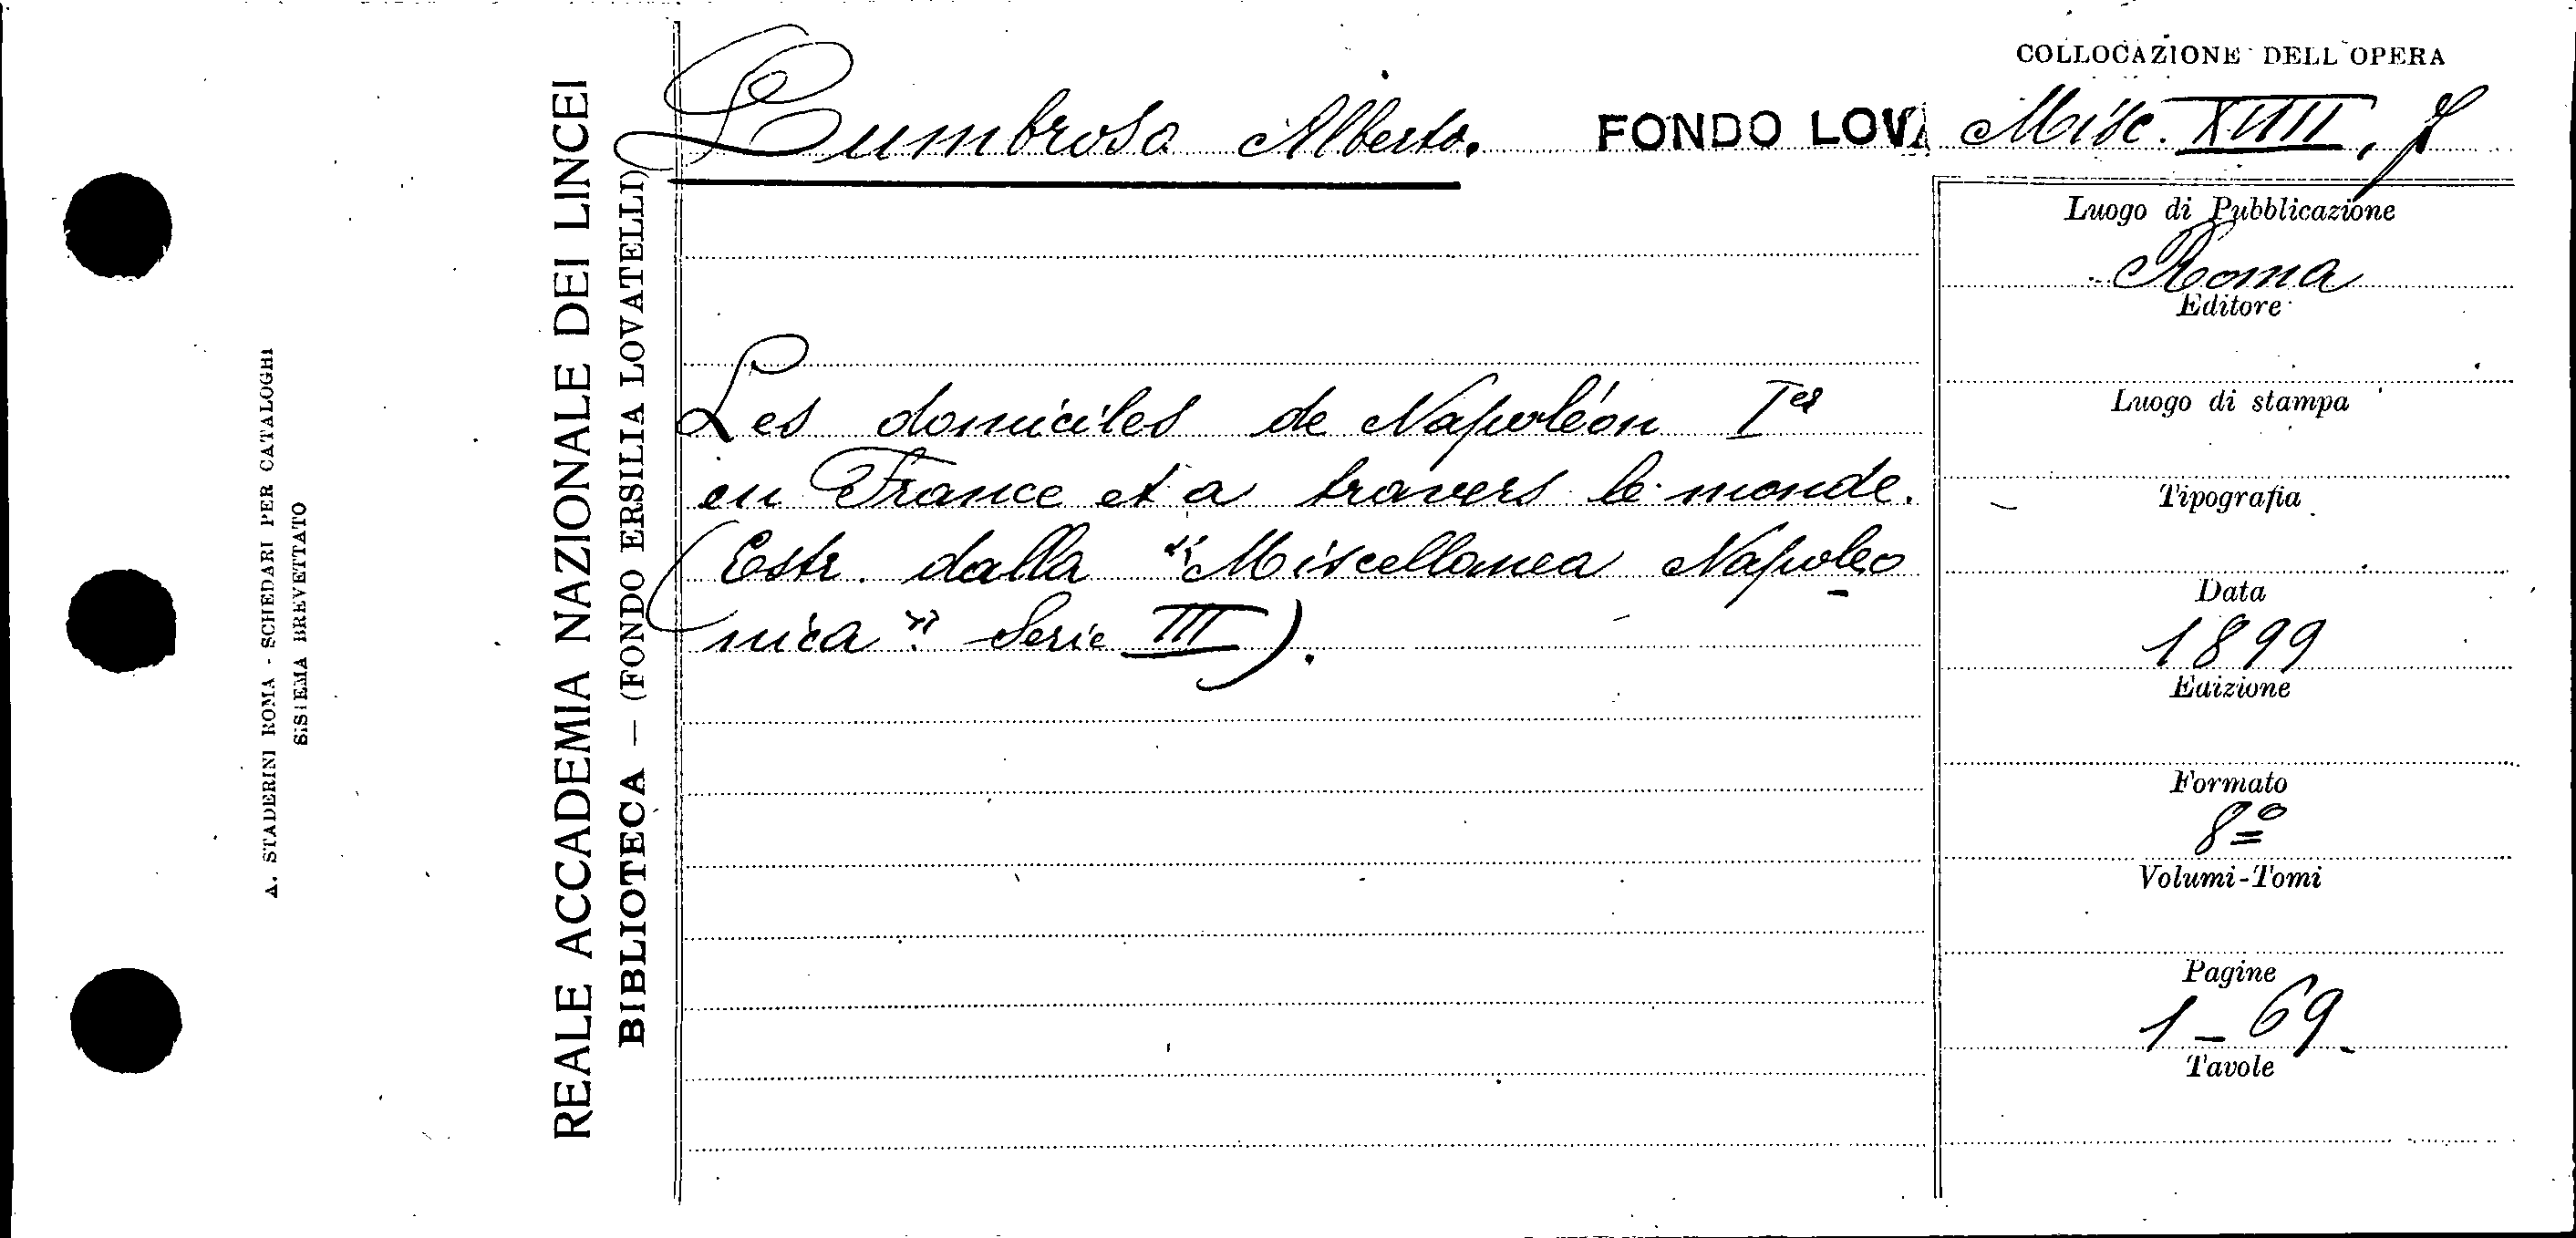 A. STADERINI ROMA - SCHEDARI PER CATALOGHI
SISTEMA BREVETTATO
REALE ACCADEMIA NAZIONALE DEI LINCEI
BIBLIOTECA — (FONDO ERSILIA LOVATELLI)
Lumbroso Alberto. FONDO LOVA
Les domiciles de Napoléon Ier
en France et a travers le monde.
(Estr. dalla "Miscellanea Napoleo
nica" Serie III).
COLLOCAZIONE DELL'OPERA
Misc. XVIII,
Luogo di Pubblicazione
Roma
Editore
Luogo di stampa
Tipografia
Data
1899
Edizione
Formato
8º
Volumi-Tomi
Pagine
1-69
Tavole